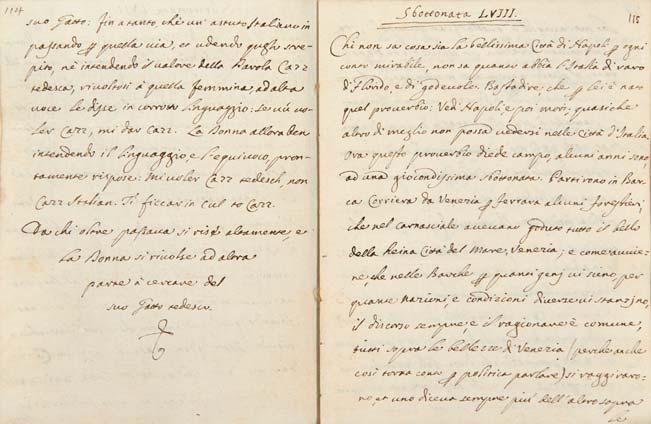 114
suo Gatto: fin a tanto che un' astuto Italiano in
passando ꝑ quella via, et udendo quegli stre-
piti, nè intendendo il valore della Parola Cazz
tedesca, rivoltosi à quella femmina, ad alta
voce le disse in corrotto linguaggio: Se vù vo-
ler Cazz, mi dar Cazz. La Donna allora ben
intendendo il linguaggio, e l'equivoco, pron-
tamente rispose: Mi voler Cazz tedesch, non
Cazz Italian. Ti ficcar in cul tò Cazz.
Da chi oltre passava si rise altamente, e
la Donna si rivolse ad altra
parte à cercare del
suo Gatto tedesco.
Sbottonata LVIII.
115
Chi non sa cosa sia la bellissima Città di Napoli ꝑ ogni
conto mirabile, non sa quanto abbia l'Italia di raro
di florido, e di godevole. Basta dire, che ꝑ lei è nato
quel proverbio: Vedi Napoli, e poi mori; quasi che
altro di meglio non possa vedersi nelle Città d'Italia.
Ora questo proverbio diede campo, alcuni anni sono,
ad una giocondissima sbottonata. Partirono in Bar-
ca Corriera da Venezia ꝑ Ferrara alcuni forestieri,
che nel carnasciale avevano goduto tutto il bello
della Reina Città del Mare, Venezia; e come avvie-
ne, che nelle Barche ꝑ quanti genj vi sieno, per
quante Nazioni, e condizioni diverse vi stanzino,
il discorso sempre, e il ragionare è comune,
tutti sopra le bellezze di Venezia (perche anche
così torna conto ꝑ politica parlare) si raggiraro-
no, et uno diceva sempre più dell'altro sopra
le